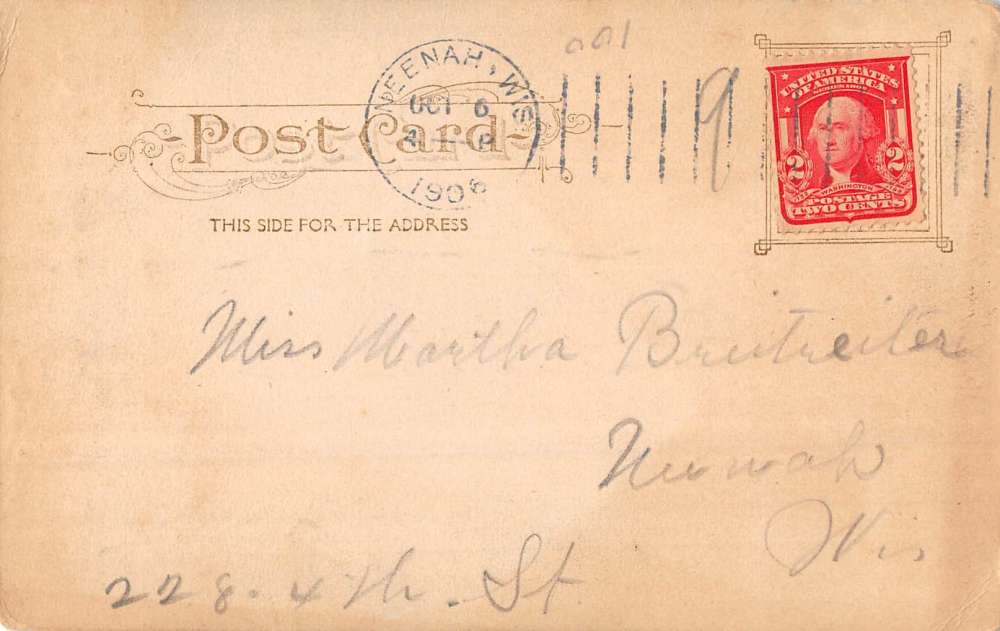 001
NEENAH, WIS
OCT 6
1906
9
UNITED STATES
OF AMERICA
SERIES 1902
2 2
WASHINGTON
POSTAGE
TWO CENTS
Post Card
THIS SIDE FOR THE ADDRESS
Miss Martha Breitreiter
Neenah
Wis
228. 4th. St